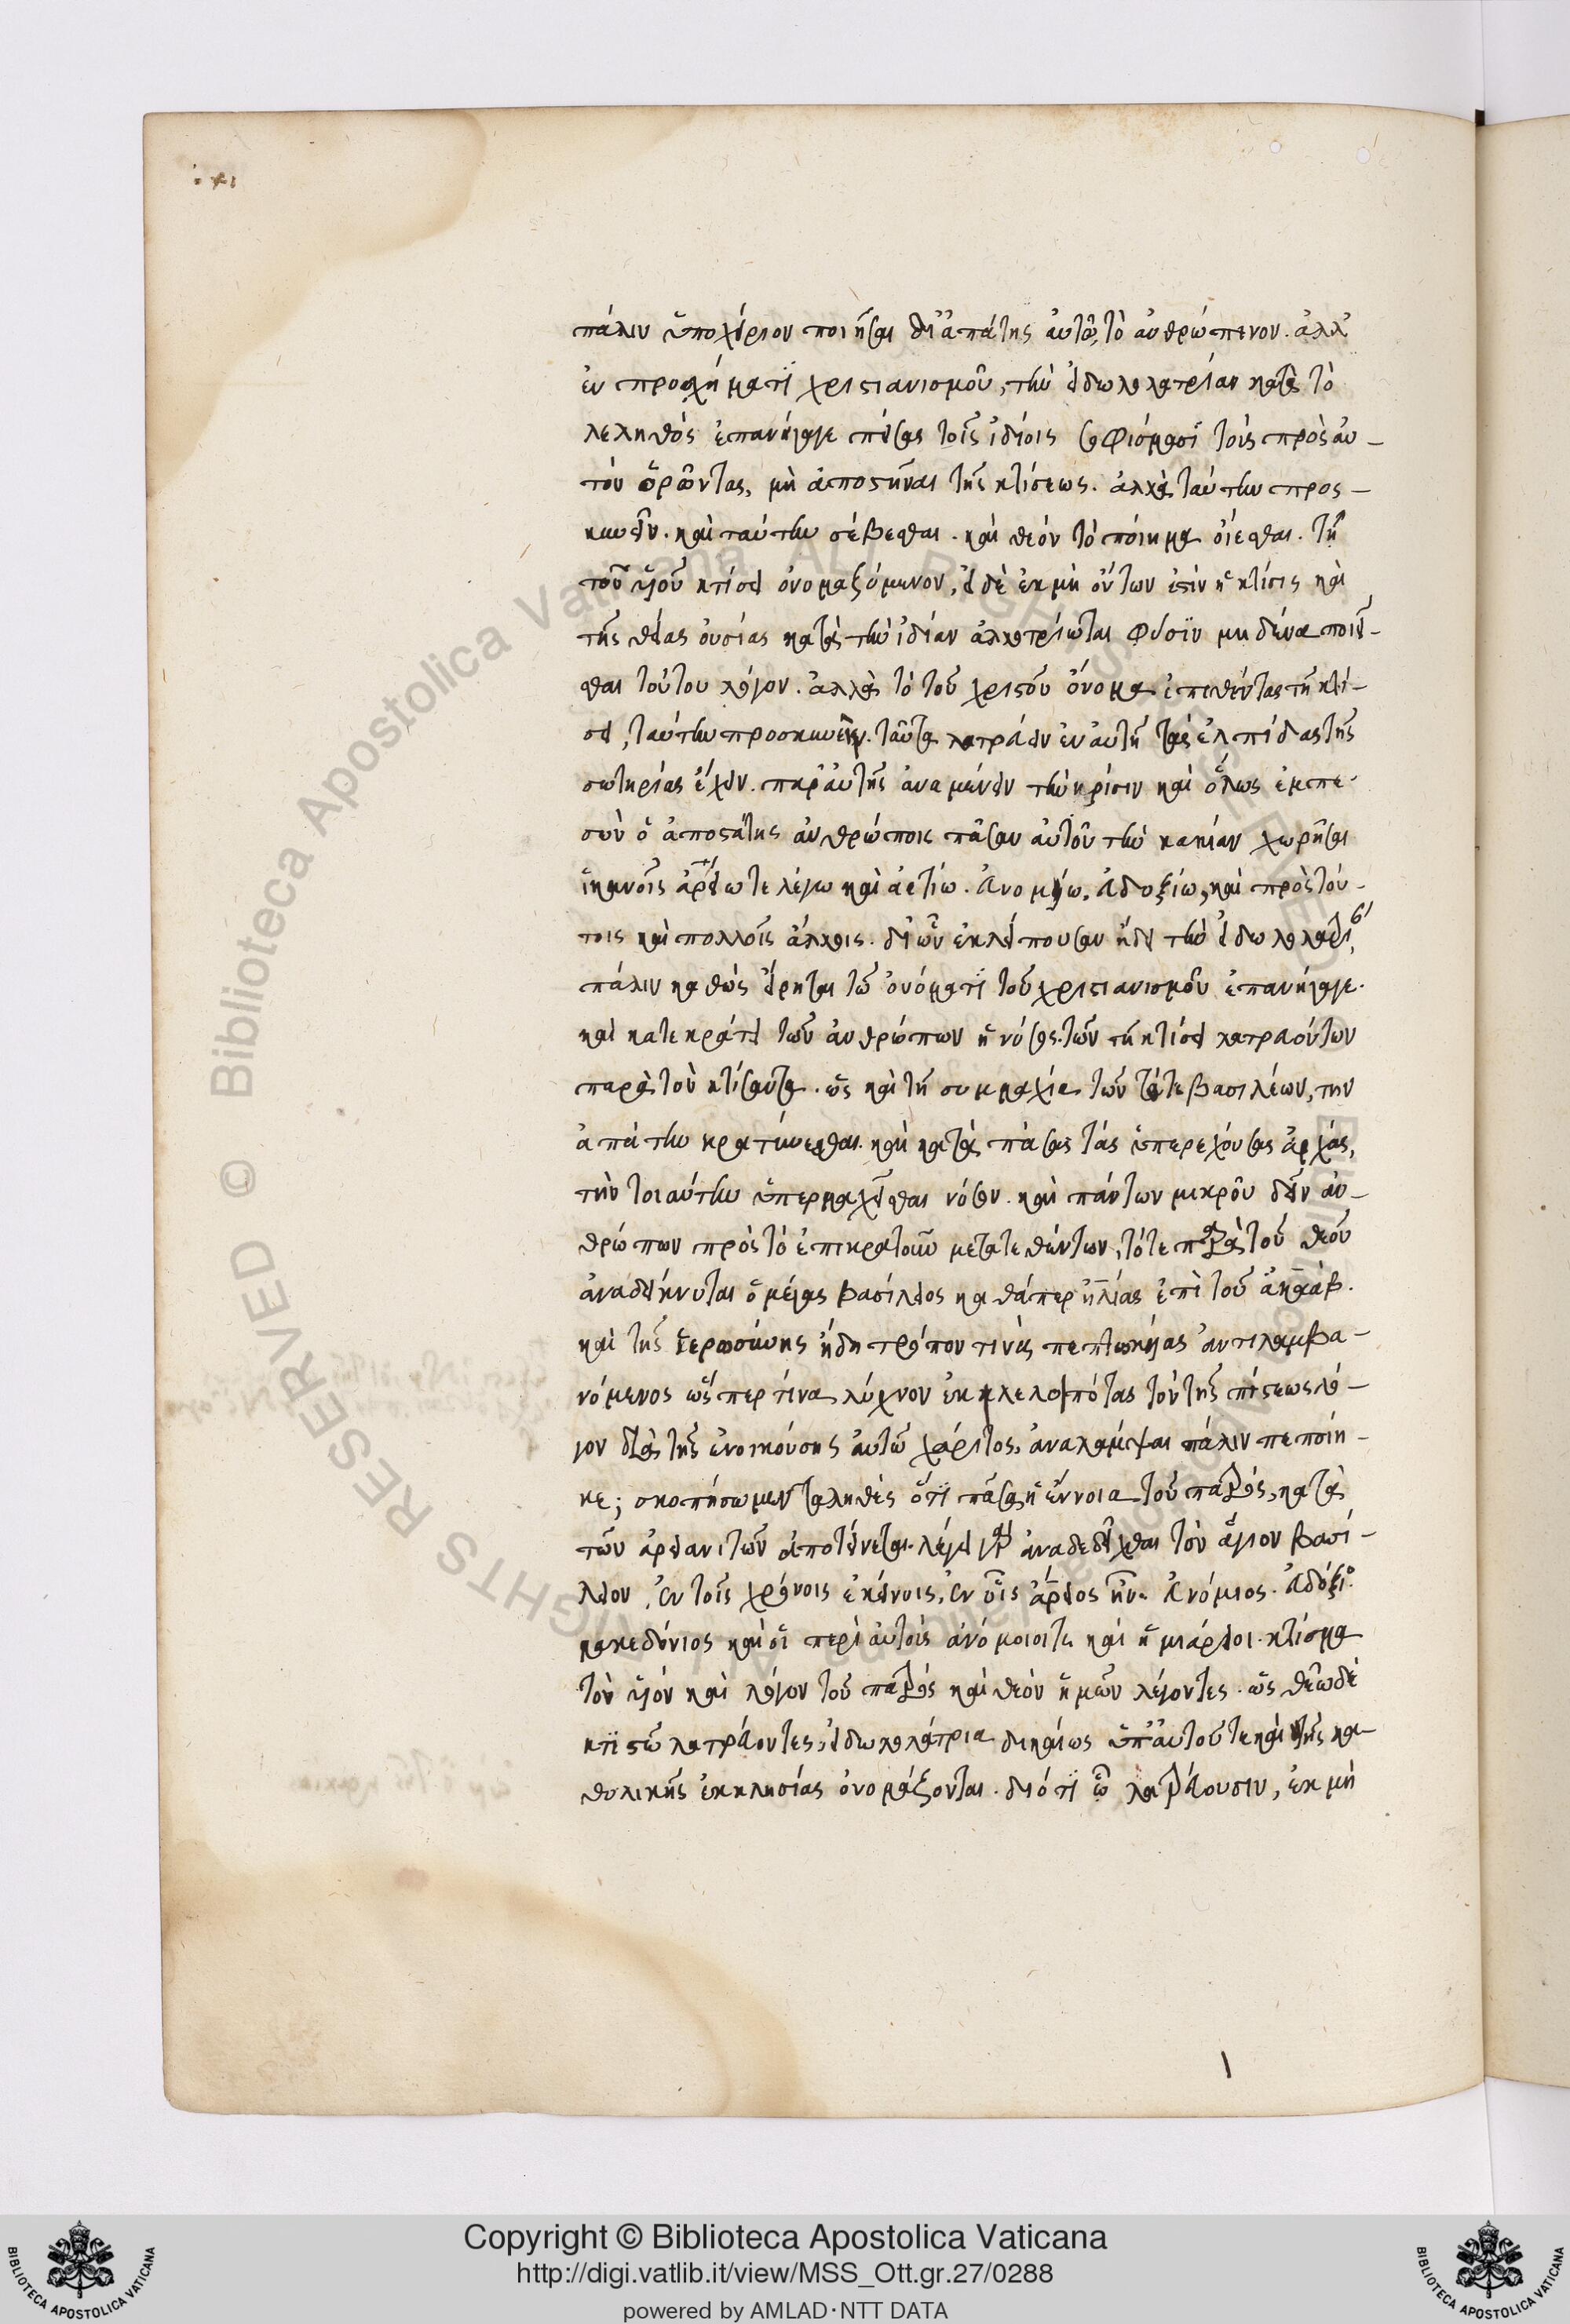 πάλιν ὑποχείριον ποιῆσαι δι' ἀπάτης αὐτῶ, τὸ ἀνθρώπινον. ἀλλ'
ἐν προσχήματι χριστιανισμοῦ, τὴν εἰδωλολατρίαν κατὰ τὸ
λεληθὸς ἐπανήγαγε πείσας τοῖς ἰδίοις σοφίσμασι τοὺς πρὸς αὐ-
τὸν ὁρῶντας, μὴ ἀποστῆναι τῆς κτίσεως. ἀλλὰ ταύτην προσ-
κυνεῖν. καὶ ταύτην σέβεσθαι. καὶ θεὸν τὸ ποίημα οἴεσθαι. τῆ
τοῦ υἱοῦ κτίσει ὀνομαζόμενον, εἰ δὲ ἐκ μὴ ὄντων ἐστὶν ἡ κτίσις καὶ
τῆς θείας οὐσίας κατὰ τὴν ἰδίαν ἀλλοτρίωται φύσιν μηδένα ποιεῖ-
σθαι τούτου λόγον. ἀλλὰ τὸ τοῦ χριστοῦ ὄνομα ἐπιθέντας τῆ κτί-
σει, ταύτην προσκυνεῖν. ταῦτα λατρεύειν ἐν αὐτῆ τὰς ἐλπίδας τῆς
σωτηρίας ἔχειν. παρ' αὐτῆς ἀναμένειν τὴν κρίσιν καὶ ὅλως ἐμπε-
σὼν ὁ ἀποστάτης ἀνθρώποις πᾶσαν αὐτοῦ τὴν κακίαν χωρῆσαι
ἱκανοῖς ἀρείω τε λέγω καὶ ἀετίω. εὐνομίω. εὐδοξίω, καὶ πρὸς τού-
τοις καὶ πολλοῖς ἄλλοις. δι' ὧν ἐκλείπουσαν ἤδη τὴν εἰδωλολατρεί,
πάλιν καθὼς εἴρηται τῶ ὀνόματι τοῦ χριστιανισμοῦ ἐπανήγαγε.
καὶ κατεκράτει τῶν ἀνθρώπων ἡ νόσος. τῶν τῆ κτίσει λατρευόντων
παρὰ τὸν κτίσαντα. ὡς καὶ τῆ συμμαχία τῶν τότε βασιλέων, την
ἀπάτην κρατύνεσθαι. καὶ κατὰ πάσας τὰς ὑπερεχούσας ἀρχάς,
τὴν τοιαύτην ὑπερμαχεῖσθαι νόσον. καὶ πάντων μικροῦ δεῖν ἀν-
θρώπων πρὸς τὸ ἐπικρατοῦν μετατεθέντων, τότε παρὰ τοῦ θεοῦ
ἀναδείκνυται ὁ μέγας βασίλειος καθάπερ ἠλίας ἐπὶ τοῦ ἀχαάβ.
καὶ τῆς ἱερωσύνης ἤδη τρόπον τινὰ πεπτωκυίας ἀντιλαμβα-
νόμενος ὥσπερ τινα λύχνον ἐκλελοιπότας τὸν τῆς πίστεως λό-
γον διὰ τῆς ἐνοικούσης αὐτῶ χάριτος, ἀναλάμψαι πάλιν πεποίη-
κε; σκοπήσωμεν τἀληθὲς ὅτι πᾶσα ἡ ἔννοια τοῦ πατρός, κατὰ
τῶν ἀρειανιτῶν ἀποτείνεται. λέγει γὰρ ἀναδεδεῖχθαι τὸν ἅγιον βασί-
λειον, ἐν τοῖς χρόνοις ἐκείνοις, ἐν οἷς ἄρειος ἦν. εὐνόμιος. εὐδόξιο
μακεδόνιος καὶ οἱ περὶ αὐτοὺς ἀνόμοιοι τε καὶ ἡμιάρειοι. κτίσμα
τὸν υἱὸν καὶ λόγον τοῦ πατρὸς καὶ θεὸν ἡμῶν λέγοντες. ὡς θεῶ δὲ
κτιστῶ λατρεύοντες, εἰδωλολάτραι δικαίως ὑπ' αὐτοῦ τε καὶ τῆς κα-
θολικῆς ἐκκλησίας ὀνομάζονται. διότι ὧ λατρεύουσιν, ἐκ μὴ